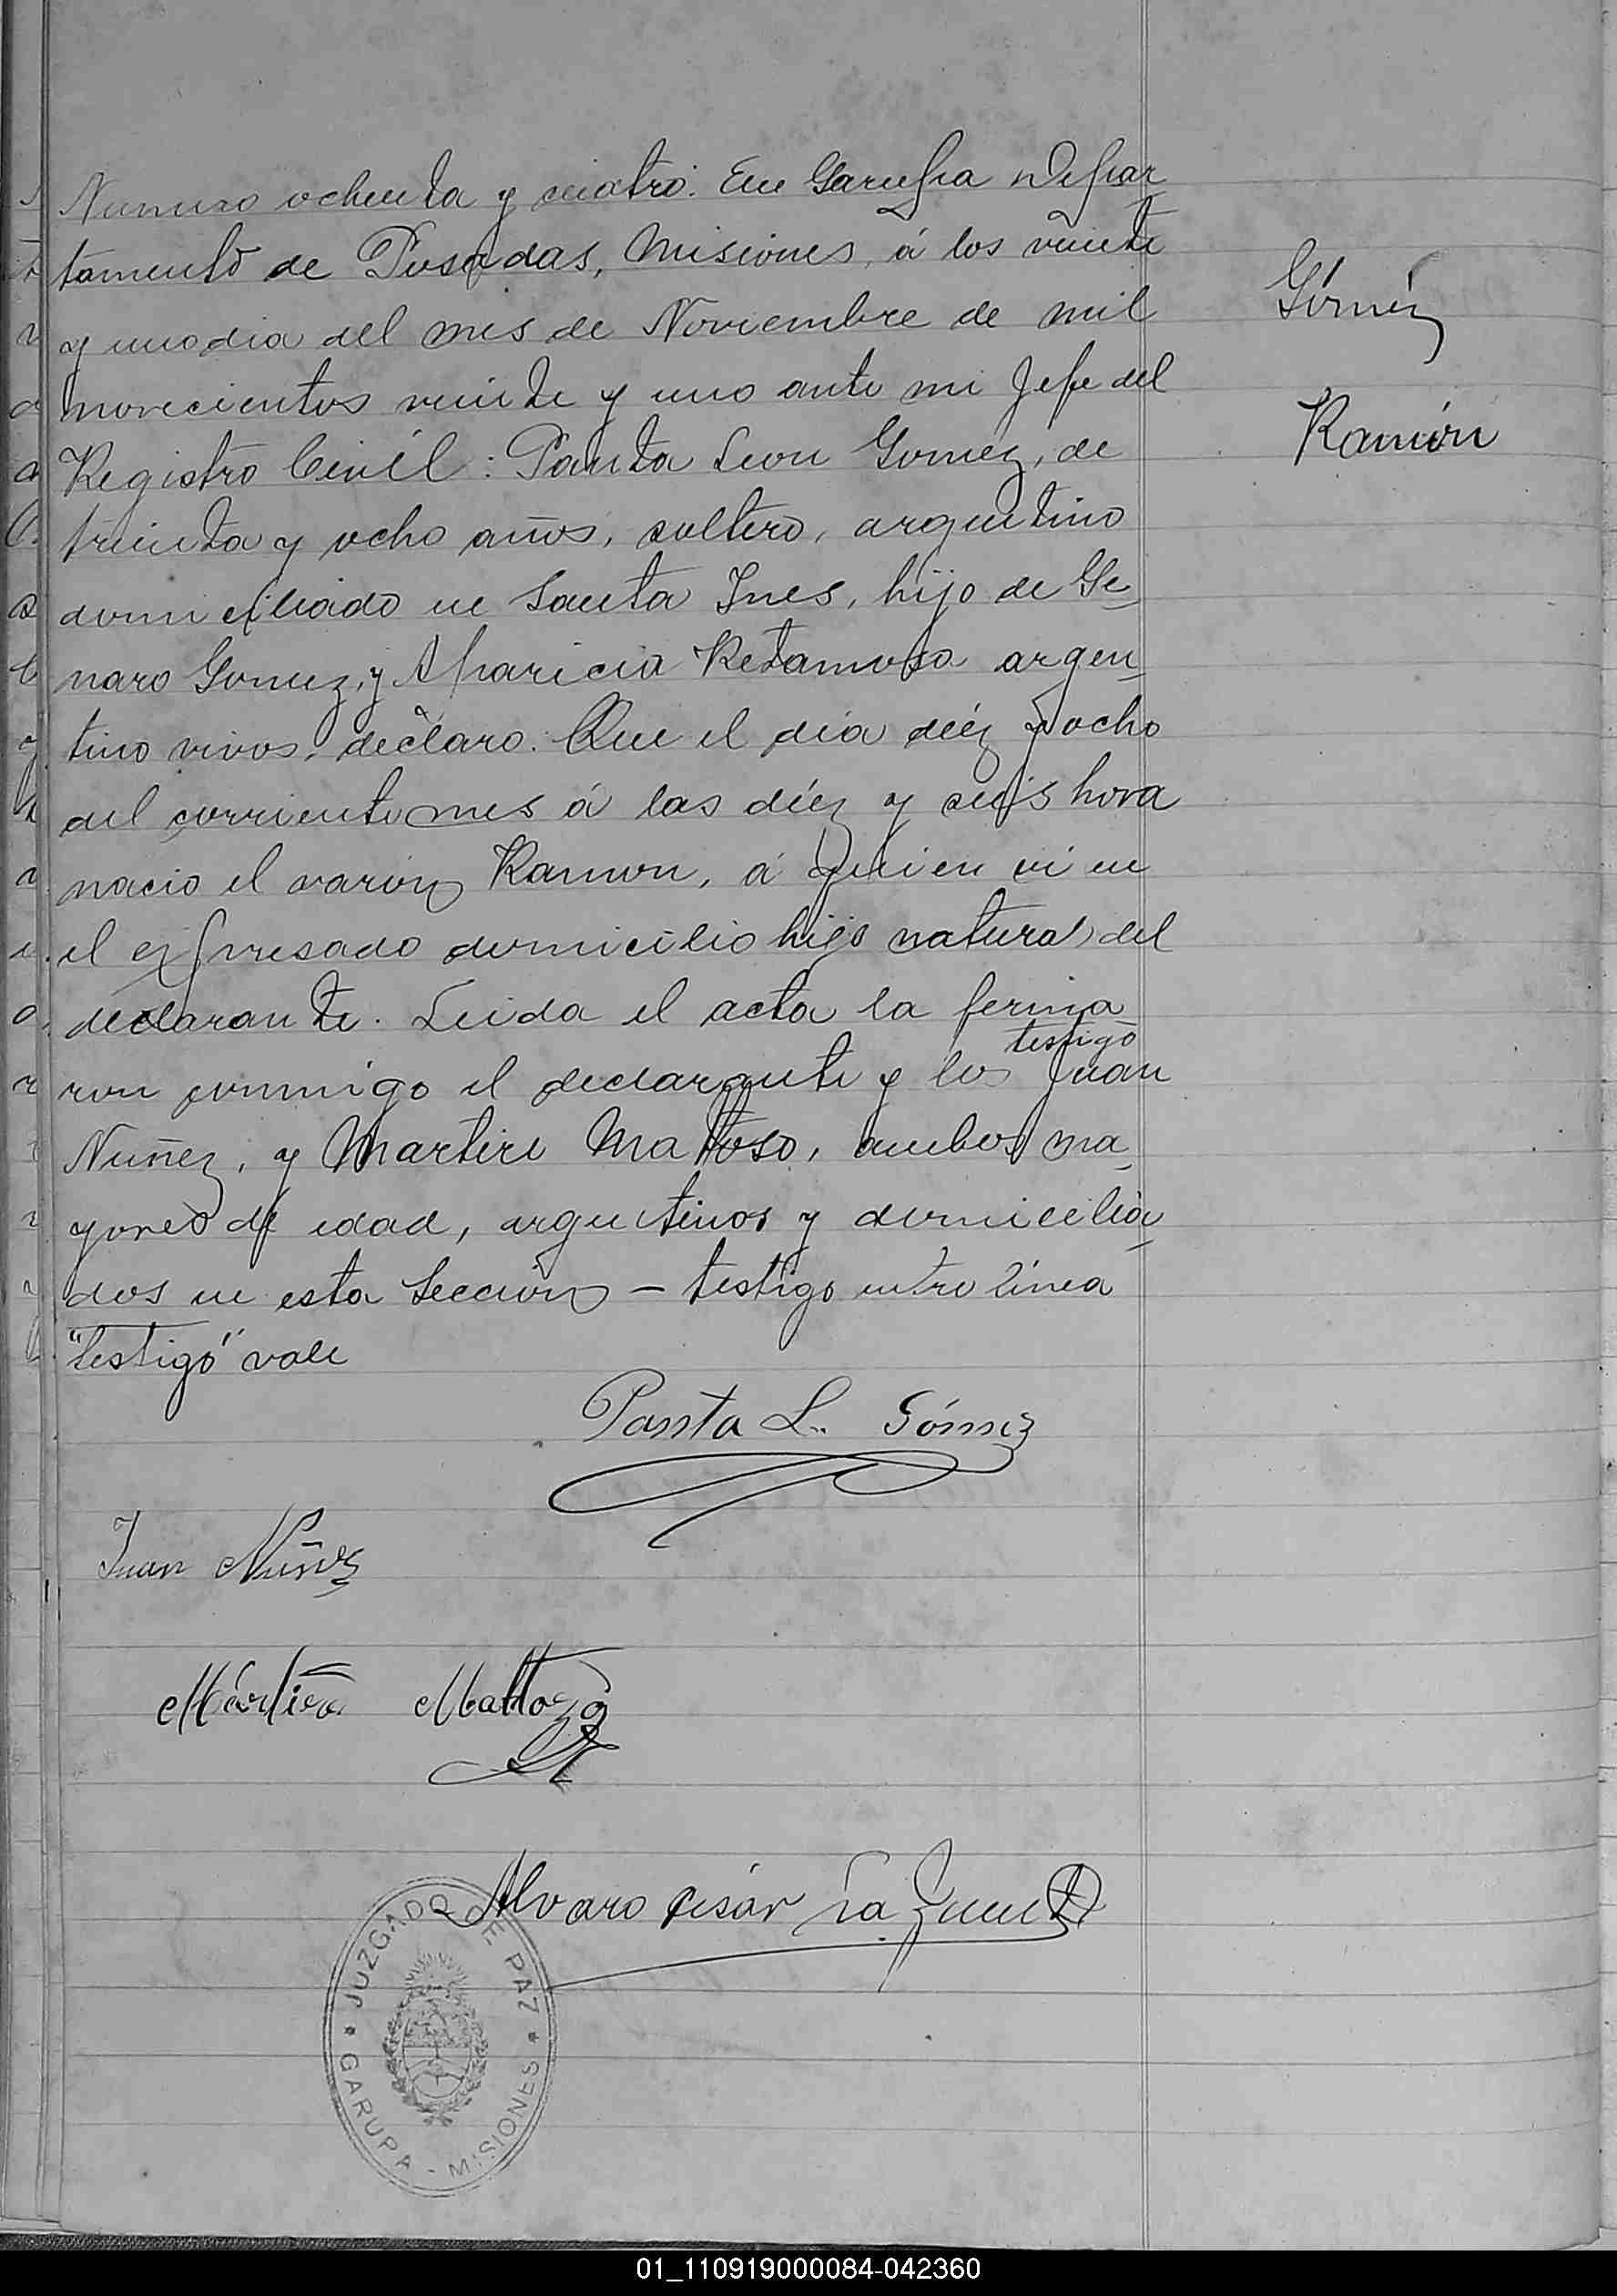 Numero ochenta y cuatro: En Garupa Depar-
tamento de Posadas, Misiones, á los veinte
y uno dia del mes de Noviembre de mil
novecientos veinte y uno ante mi Jefe del
Registro Civíl: Panta Leon Gomez, de
treinta y ocho años, soltero, argentino
domiciliado en Santa Ines, hijo de Ge-
naro Gomez, y Aparicia Retamoso argen-
tino vivos, declaro: Que el día diéz y ocho
del corriente mes á las diéz y seis hora
nacio el varón Ramon, á quien vi en
el expresado domicilio hijo natural del
declarante. Leida el acta la ferma
testigo
ron conmigo el declarante y los Juan
Nuñez, y Martire Mattoso, ambos ma-
yores de edad, argentinos y domicilia-
dos en esta Sección — testigo entre línea
"testigo" vale
Panta L. Gómez
Juan Nuñez
Mattozo
Alvaro César
Gómez
Ramón
JUZGADO DE PAZ
* GARUPA - MISIONES *
01_110919000084-042360